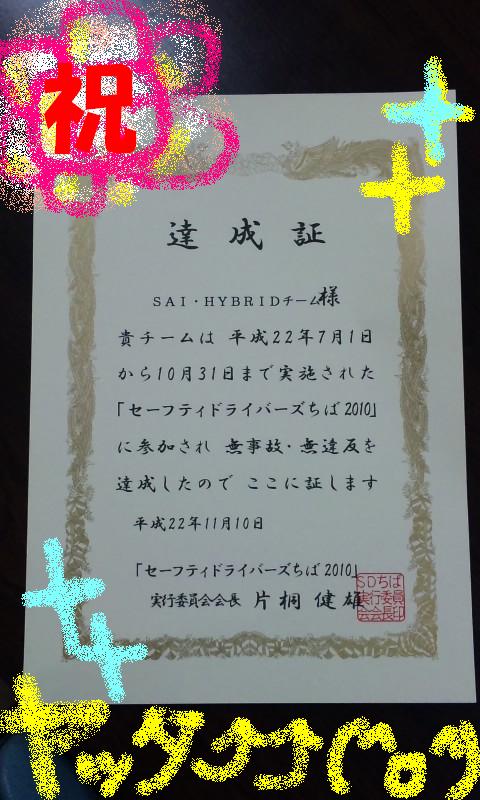 祝
達成証
SAI・HYBRIDチーム様
貴チームは 平成22年7月1日
から10月31日まで実施された
「セーフティドライバーズちば2010」
に参加され 無事故・無違反を
達成したので ここに証します
平成22年11月10日
「セーフティドライバーズちば2010」
実行委員会会長 片桐 健雄
SDちば
実行委員
会会長印